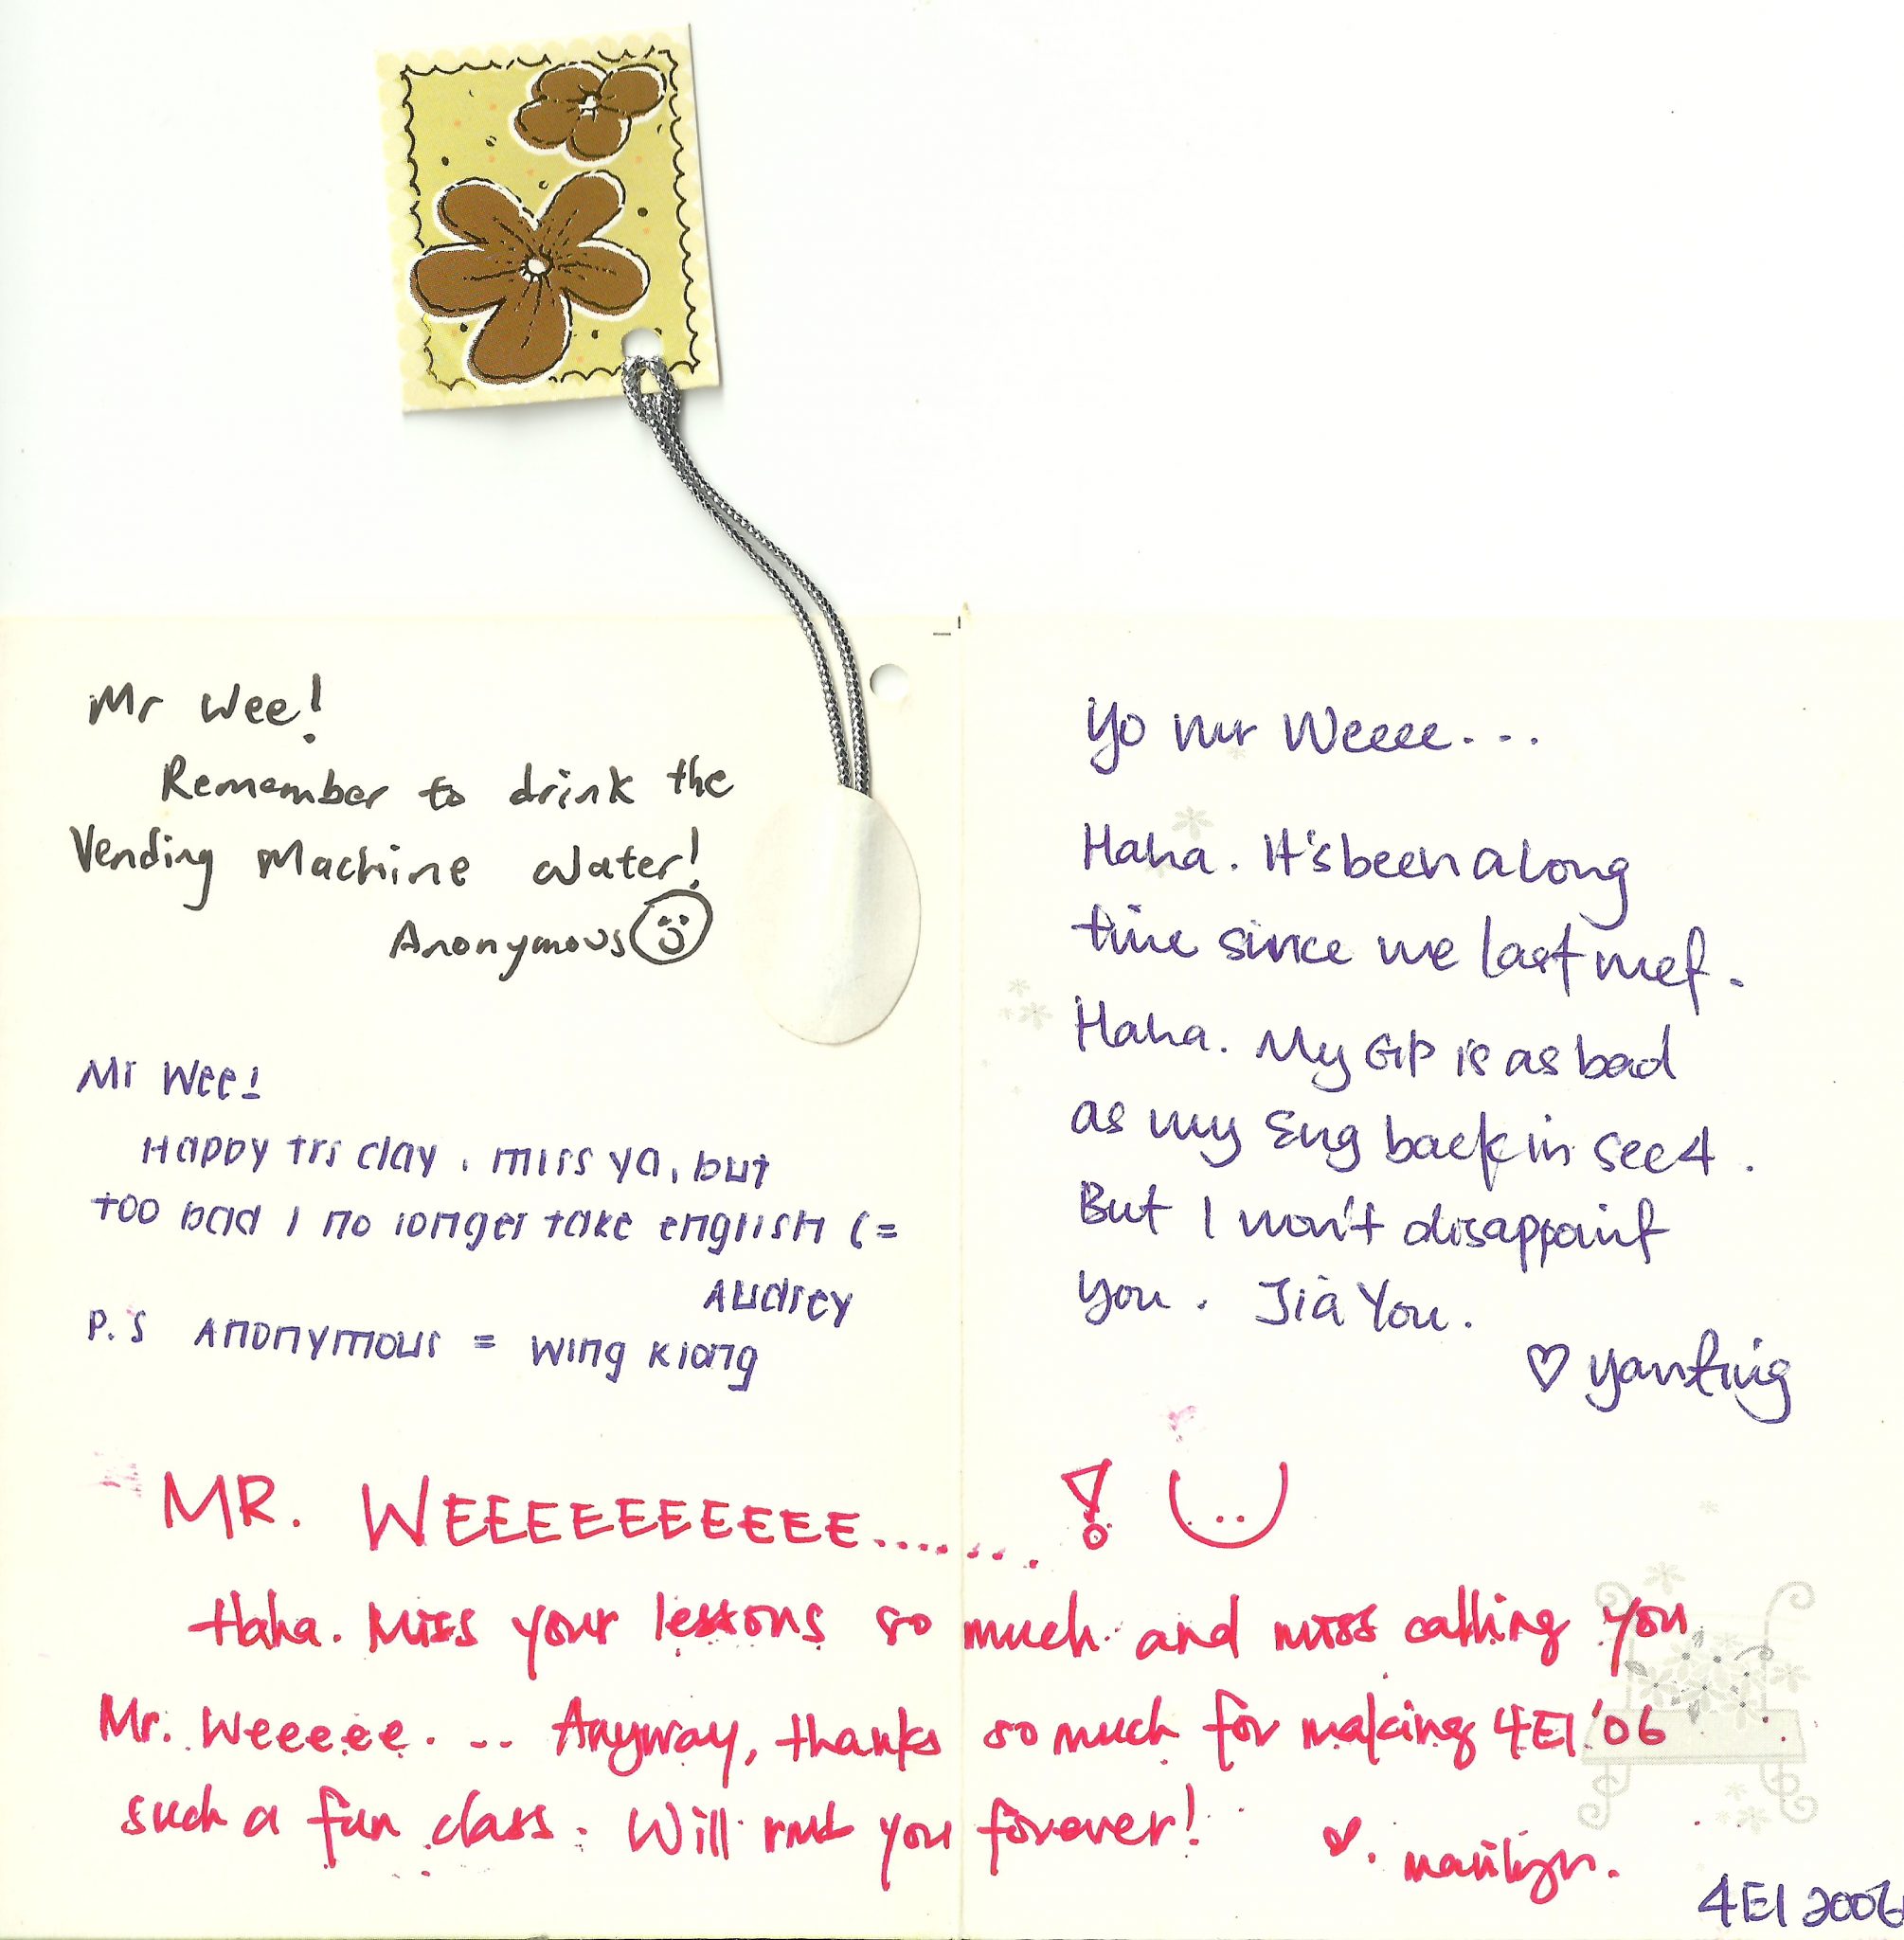 Mr Wee!
Remember to drink the
Vending Machine Water!
Anonymous
Mr Wee!
Happy trs day. miss ya, but
too bad I no longer take english (=
Audrey
P.S Anonymous = Wing Kiang
Yo Mr Weeee...
Haha. It's been a long
time since we last met.
Haha. My GP is as bad
as my Eng back in sec 4.
But I won't disappoint
you. Jia You.
♡ yanting
MR. WEEEEEEEEEE........!
Haha. Miss your lessons so much and miss calling you
Mr. Weeeee... Anyway, thanks so much for making 4E1 '06
such a fun class. Will rmb you forever!
♥. marilyn.
4E1 2006